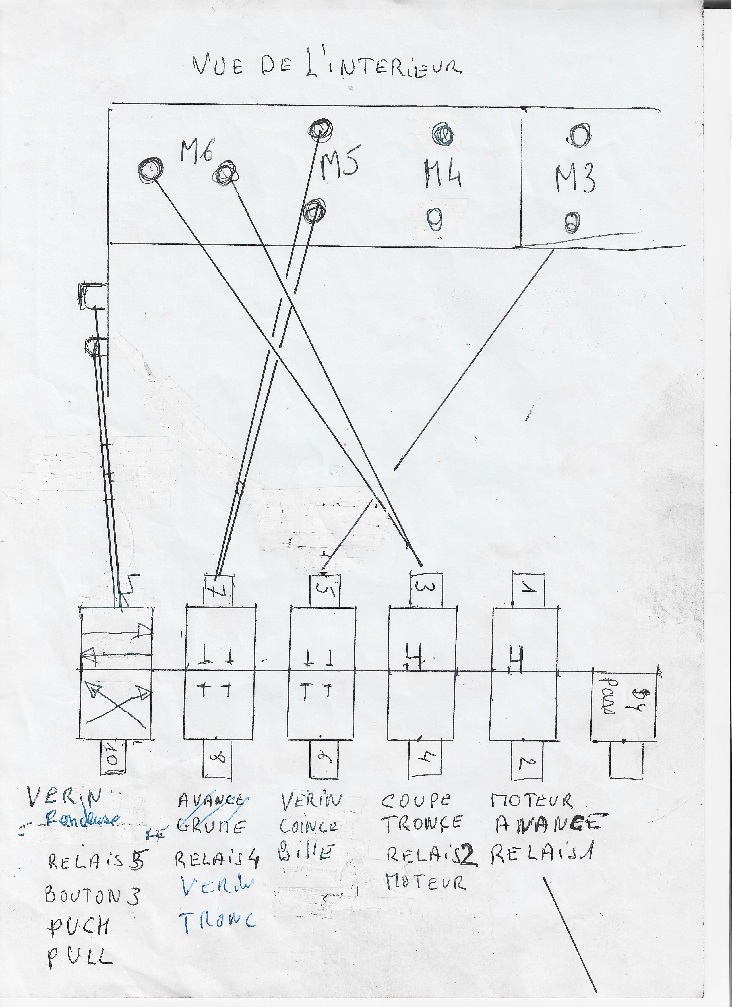 VUE DE L'INTERIEUR
M6
M5
M4
M3
7
5
3
1
By
Pass
10
8
6
4
2
VERIN
Fendeuse
RELAIS 5
BOUTON 3
PUCH
PULL
AVANCE
GRUME
RELAIS 4
VERIN
TRONC
VERIN
COINCE
BILLE
COUPE
TRONCE
RELAIS 2
MOTEUR
MOTEUR
AVANCE
RELAIS 1